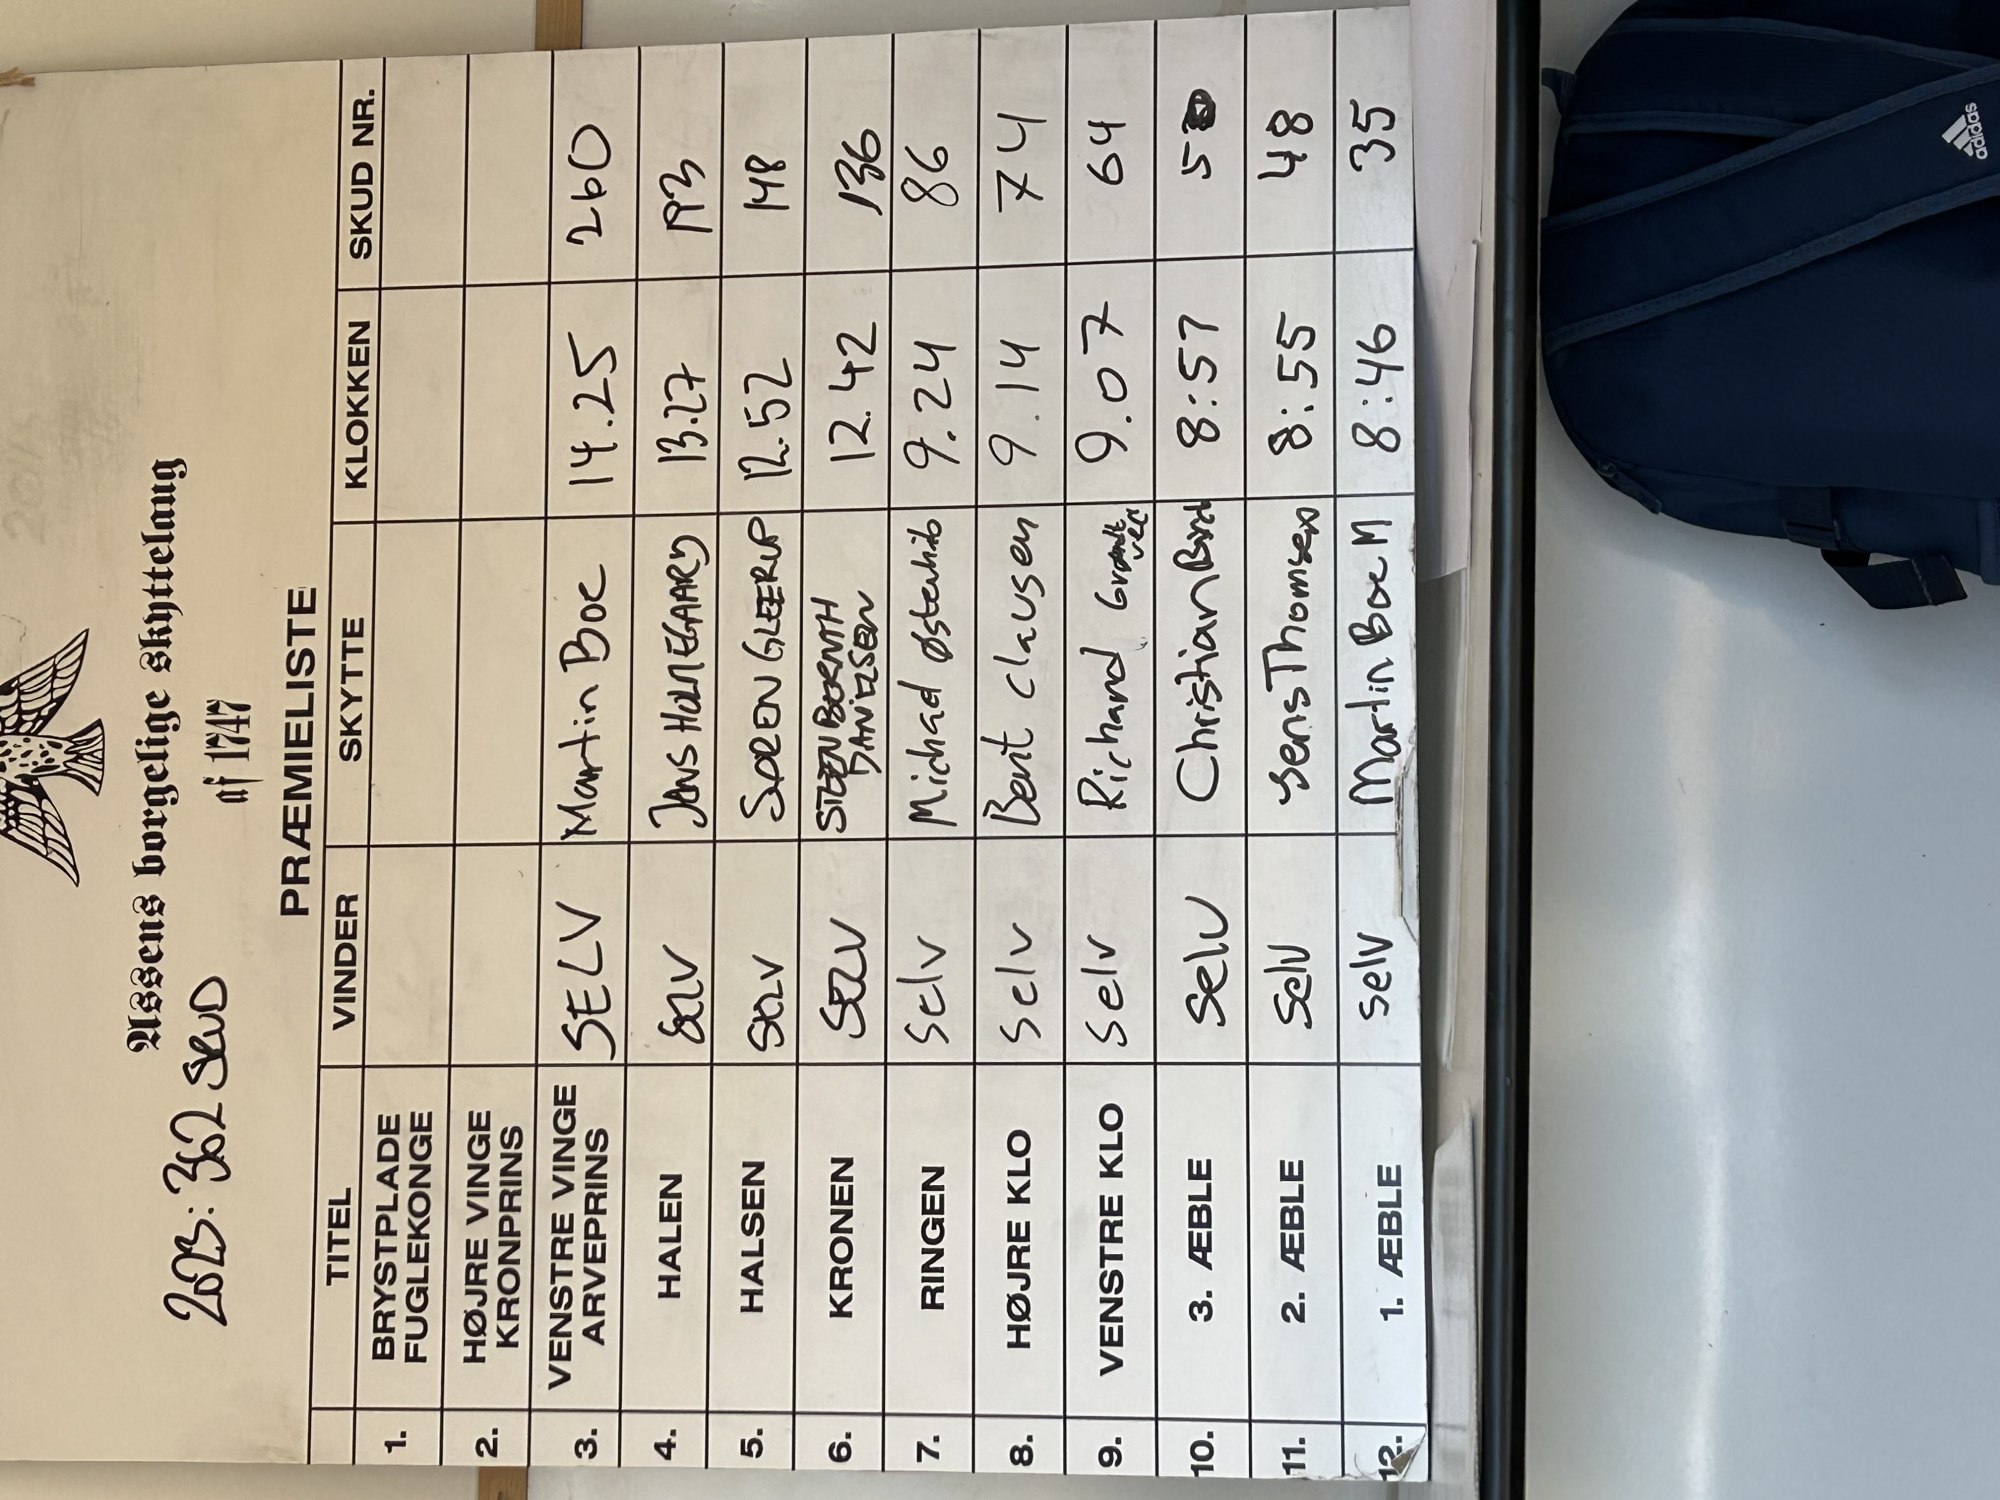 Assens borgerlige Skyttelaug
af 1747
2023: 362 SKUD
PRÆMIELISTE
TITEL VINDER SKYTTE KLOKKEN SKUD NR.
1. BRYSTPLADE
FUGLEKONGE
2. HØJRE VINGE
KRONPRINS
3. VENSTRE VINGE
ARVEPRINS SELV Martin Boe 14.25 260
4. HALEN SELV JENS HOLMEGAARD 13.27 193
5. HALSEN SELV SØREN GLEERUP 12.52 148
6. KRONEN SELV STEEN
DANIELSEN 12.42 136
7. RINGEN Selv Michael 9.24 86
8. HØJRE KLO Selv Bent Clausen 9.14 74
9. VENSTRE KLO Selv Richard 9.07 64
10. 3. ÆBLE Selv Christian 8:57
11. 2. ÆBLE Selv Jens Thomsen 8:55 48
12. 1. ÆBLE selv Martin Boe M 8:46 35
adidas